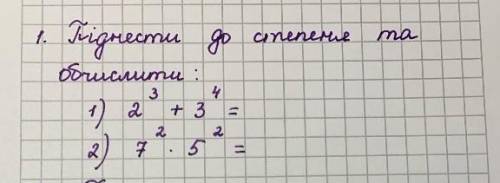 1. Піднести до степеня та
обчислити:
1) 2³ + 3⁴ =
2) 7² · 5² =